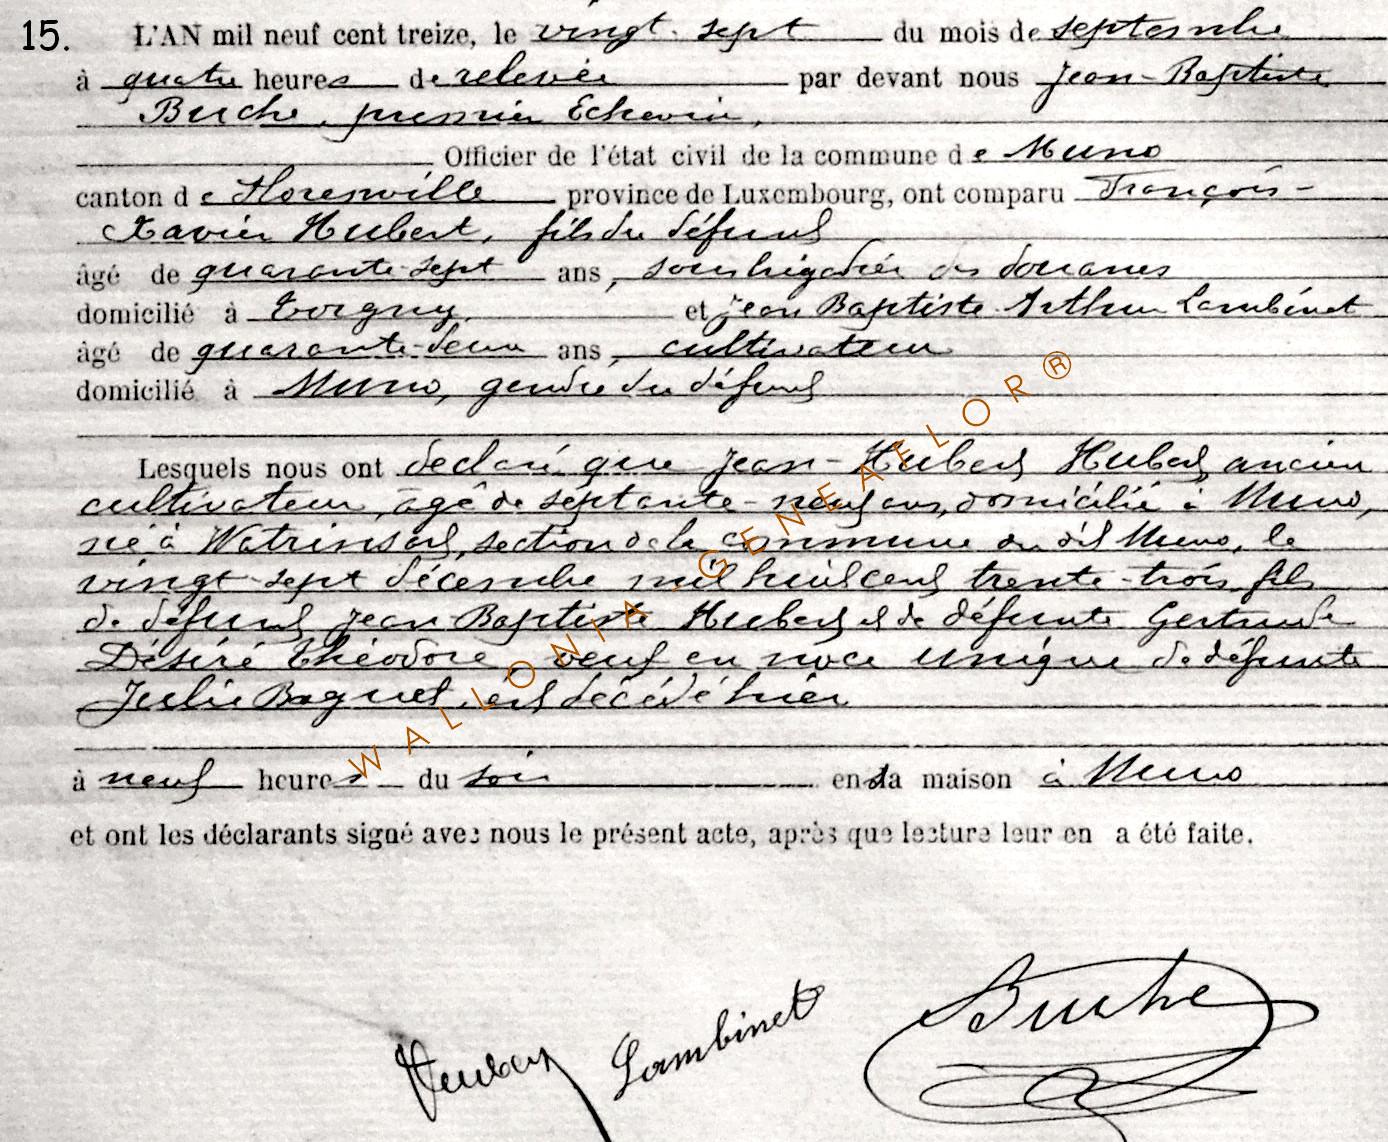 15. L'AN mil neuf cent treize, le vingt-sept du mois de septembre
à quatre heures de relevée par devant nous Jean-Baptiste
Buche, premier Echevin,
Officier de l'état civil de la commune de Muno
canton de Florenville province de Luxembourg, ont comparu François-
Xavier Hubert, fils du défunt
âgé de quarante-sept ans, sous brigadier des douanes
domicilié à Torgny et Jean Baptiste Arthur Lambinet
âgé de quarante-deux ans, cultivateur
domicilié à Muno, gendre du défunt
Lesquels nous ont declaré que Jean-Hubert Hubert, ancien
cultivateur, âgé de septante-neuf ans, domicilié à Muno,
né à Watrinsart, section de la commune du dit Muno, le
vingt-sept décembre mil huit cent trente-trois, fils
de défunt Jean Baptiste Hubert et de défunte Gertrude
Désiré Théodore, veuf en noce unique de défunte
Julie Baquet, est décédé hier
à neuf heures du soir en sa maison à Muno
et ont les déclarants signé avec nous le présent acte, après que lecture leur en a été faite.
Hubert Lambinet Buche
WALLONIA GENEAFLOR®